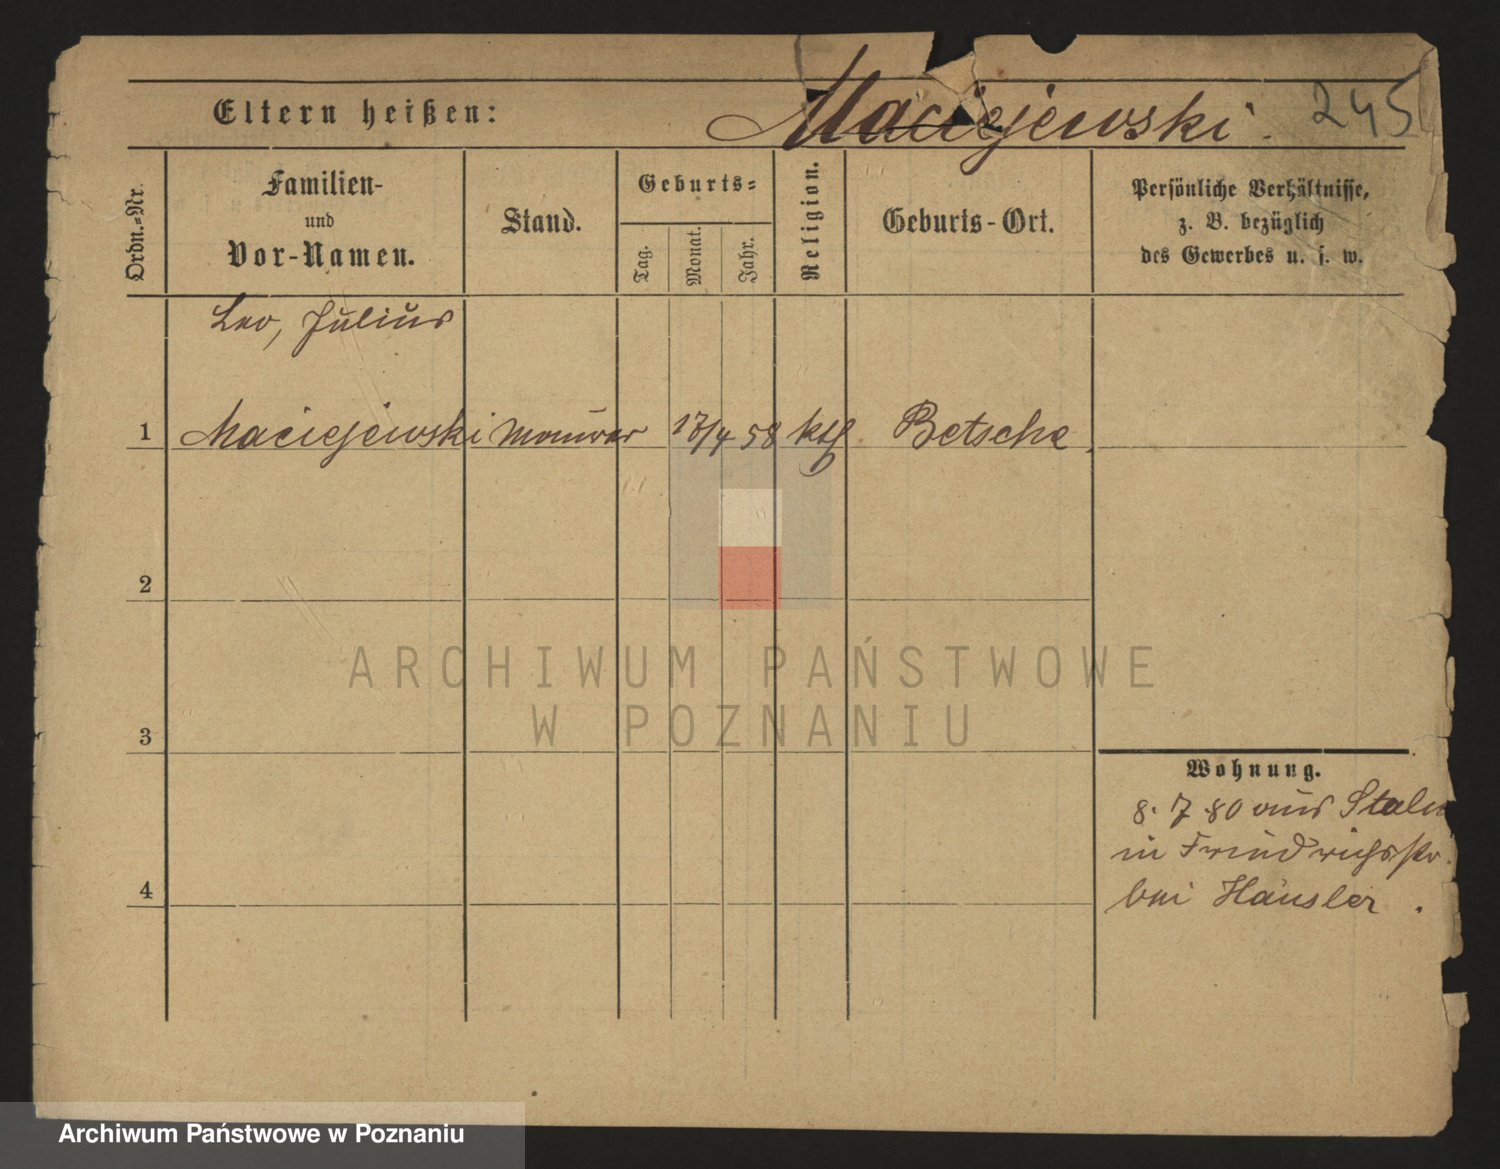 Eltern heißen:
Maciejewski.
245
Ordn.-Nr.
Familien-
und
Vor-Namen.
Stand.
Geburts-
Tag.
Monat.
Jahr.
Religion.
Geburts-Ort.
Persönliche Verhältnisse,
z. B. bezüglich
des Gewerbes u. s. w.
Leo, Julius
1 Maciejewski Maurer /4 58 kth. Betsche
2
3
4
Wohnung.
8. 7. 80 aus
in Friedrichsstr.
bei Häusler.
ARCHIWUM PAŃSTWOWE
W POZNANIU
Archiwum Państwowe w Poznaniu